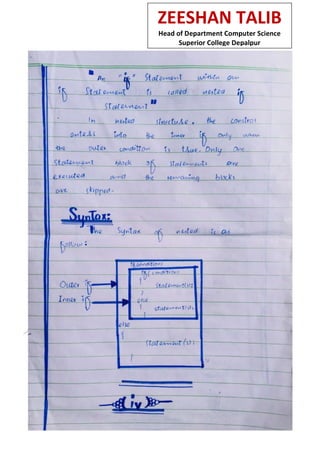 ZEESHAN TALIB
Head of Department Computer Science
Superior College Depalpur
"An "if" Statement within an
if Statement is called nested if
Statement"
In nested structure, the control
enters into the inner if only when
the outer condition is true. Only one
Statement block of statements are
executed and the remaining blocks
are skipped.
Syntax:
The Syntax of nested is as
follow:
if(condition)
if(condition)
{
Outer if
Statement(s);
}
Inner if
else
{
statement(s);
}
else
{
Statement(s);
}
(iv)